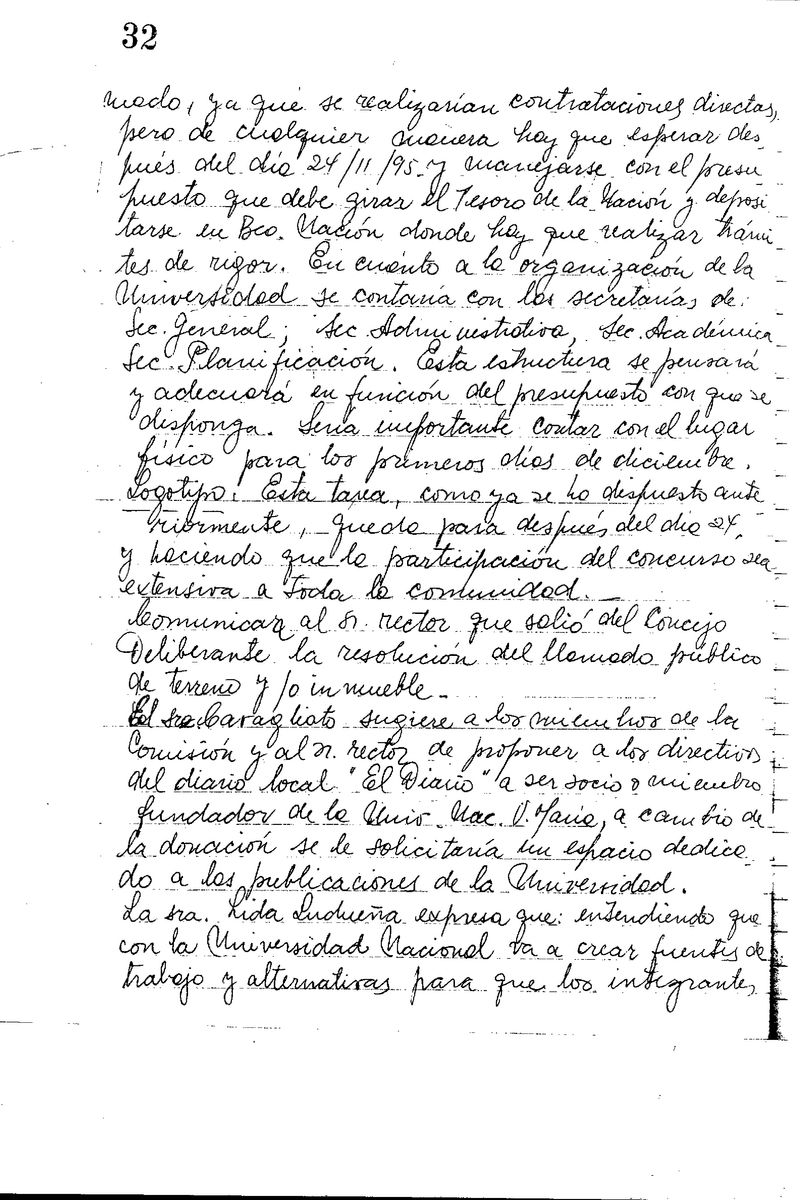 32
mado, ya que se realizarían contrataciones directas,
pero de cualquier manera hay que esperar des-
pués del día 24/11/95 y manejarse con el presu-
puesto que debe girar el Tesoro de la Nación y deposi
tarse en Bco. Nación donde hay que realizar trámi-
tes de rigor. En cuánto a la organización de la
Universidad se contaría con las secretarías de:
Sec. General; Sec. Administrativa, Sec. Académica
Sec. Planificación. Esta estructura se pensará
y adecuará en función del presupuesto con que se
disponga. Sería importante contar con el lugar
físico para los primeros días de diciembre.
Logotipo: Esta tarea, como ya se ha dispuesto ante
riormente, queda para después del día 24,
y haciendo que la participación del concurso sea
extensiva a toda la comunidad. —
Comunicar al Sr. rector que salió del Concejo
Deliberante la resolución del llamado público
de terreno y/o inmueble -
El sr. Caragliato sugiere a los miembros de la
Comisión y al Sr. rector de proponer a los directivos
del diario local "El Diario" a ser socio o miembro
fundador de la Univ. Nac. V. María, a cambio de
la donación se le solicitaría un espacio dedica
do a las publicaciones de la Universidad.
La sra. Lida Ludueña expresa que: entendiendo que
con la Universidad Nacional va a crear fuentes de
trabajo y alternativas para que los integrantes